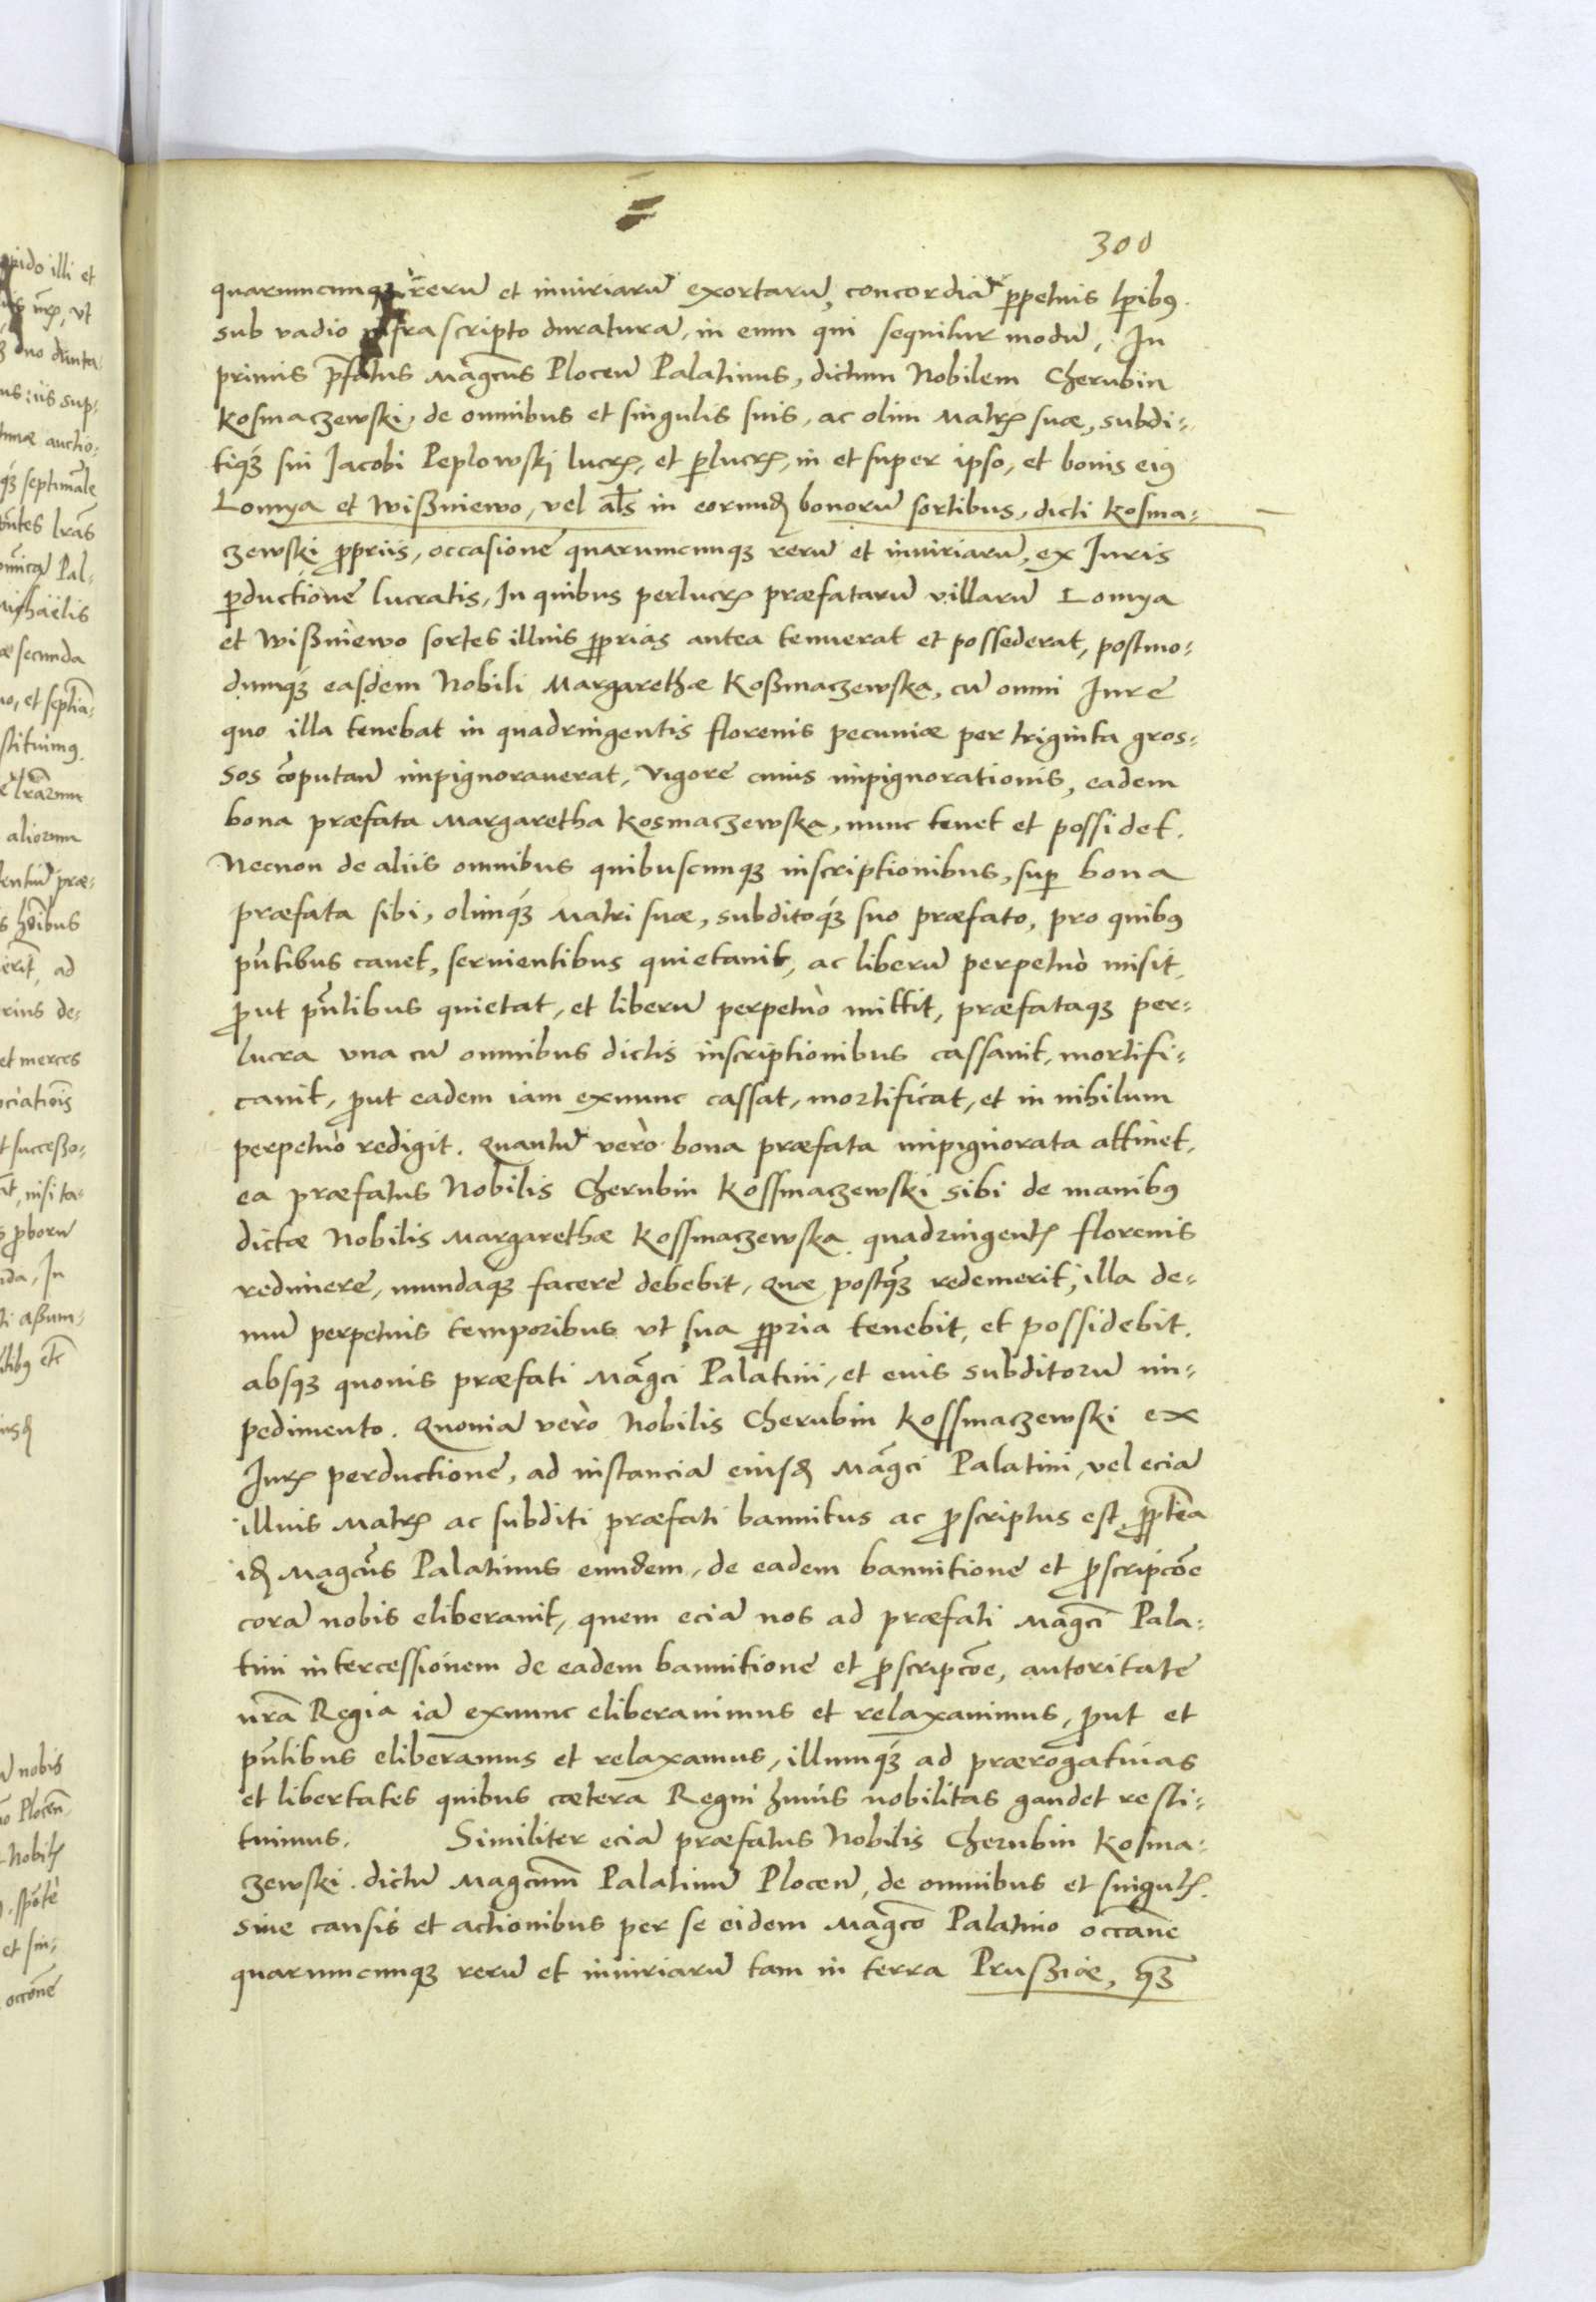 300
quarumcunq3 rerū et iniuriarū exortarū, concordiā ppetuis tpibus.
sub vadio infrascripto duraturā, in eum qui sequitur modū, In
primis pfatus Magcus Plocen Palatinus, dictum Nobilem Cherubin
Kosmaczewski, de omnibus et singulis suis, ac olim Matris suæ, subdi-
tiq3 sui Jacobi Peplowski lucris, et plucris, in et super ipso, et bonis eius
Lomya et Wißniewo, vel als in eorund bonorū sortibus, dicti Kosma-
czewski propriis, occasione quarumcunq3 rerū et iniuriarū, ex Juris
pductione lucratis, In quibus perlucris præfatarū villarū Lomya
et Wißniewo sortes illius pprias antea tenuerat et possederat, postmo-
dumq3 easdem Nobili Margarethæ Koßmaczewska, cū omni Jure
quo illa tenebat in quadringentis florenis pecuniæ per triginta gros-
sos coputan impignorauerat, Vigore cuius impignorationis, eadem
bona præfata Margaretha Kosmaczewska, nunc tenet et possidet.
Necnon de aliis omnibus quibuscunq3 inscriptionibus, sup bona
præfata sibi, olimq3 Matri suæ, subditoq3 suo præfato, pro quibus
pntibus cauet, seruientibus quietauit, ac liberū perpetuò misit,
put pntibus quietat, et liberū perpetuò mittit, præfataq3 per-
lucra vna cū omnibus dictis inscriptionibus cassauit, mortifi-
cauit, put eadem iam exnunc cassat, mortificat, et in nihilum
perpetuò redigit. Quantū verò bona præfata impignorata attinet,
ea præfatus Nobilis Cherubin Kossmaczewski sibi de manibus
dictæ Nobilis Margarethæ Kossmaczewska quadringentis florenis
redimere, mundaq3 facere debebit, Quæ postq3 redemerit, illa de-
mū perpetuis temporibus vt sua ppria tenebit, et possidebit.
absq3 quouis præfati Magci Palatini, et euis subditorū im-
pedimento. Quoniā verò Nobilis Cherubin Kossmaczewski ex
Juris perductione, ad instanciā eiusd Magci Palatini, vel eciā
illius Matris ac subditi præfati bannitus ac pscriptus est, pptea
id Magcus Palatinus eundem, de eadem bannitione et pscripcoe
corā nobis eliberauit, quem eciā nos ad præfati Magci Pala-
tini intercessionem de eadem bannitione et pscripcoe, autoritate
nra Regia iā exnunc eliberauimus et relaxauimus, put et
pntibus eliberamus et relaxamus, illumq3 ad prærogatiuas
et libertates quibus cætera Regni huius nobilitas gaudet resti-
tuimus. Similiter eciā præfatus Nobilis Cherubin Kosma-
zewski dictū Magcum Palatinū Plocen, de omnibus et singulis
siue causis et actionibus per se eidem Magco Palatino occane
quarumcunq3 rerū et iniuriarū tam in terra Prußiæ, q3